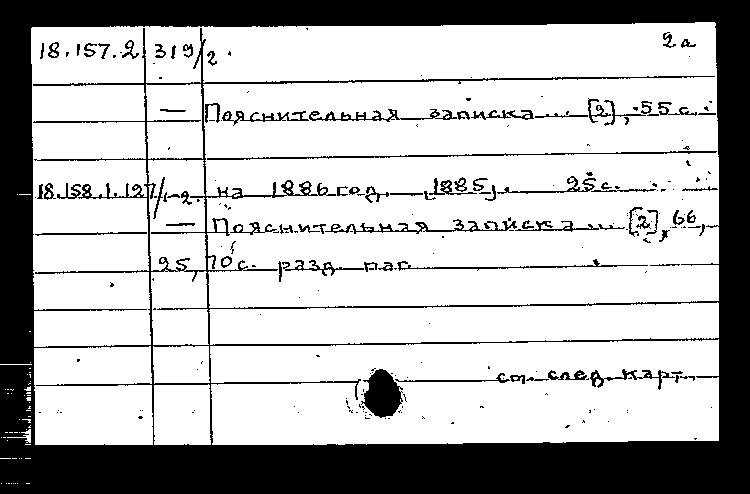 2а
18.157.2.319/2.
— Пояснительная записка... [2], 55 с.
18.158.1.127/1-2. на 1886 год. [1885]. 25 с.
— Пояснительная записка... [2], 66,
25, 70 с. разд. паг.
см. след. карт.